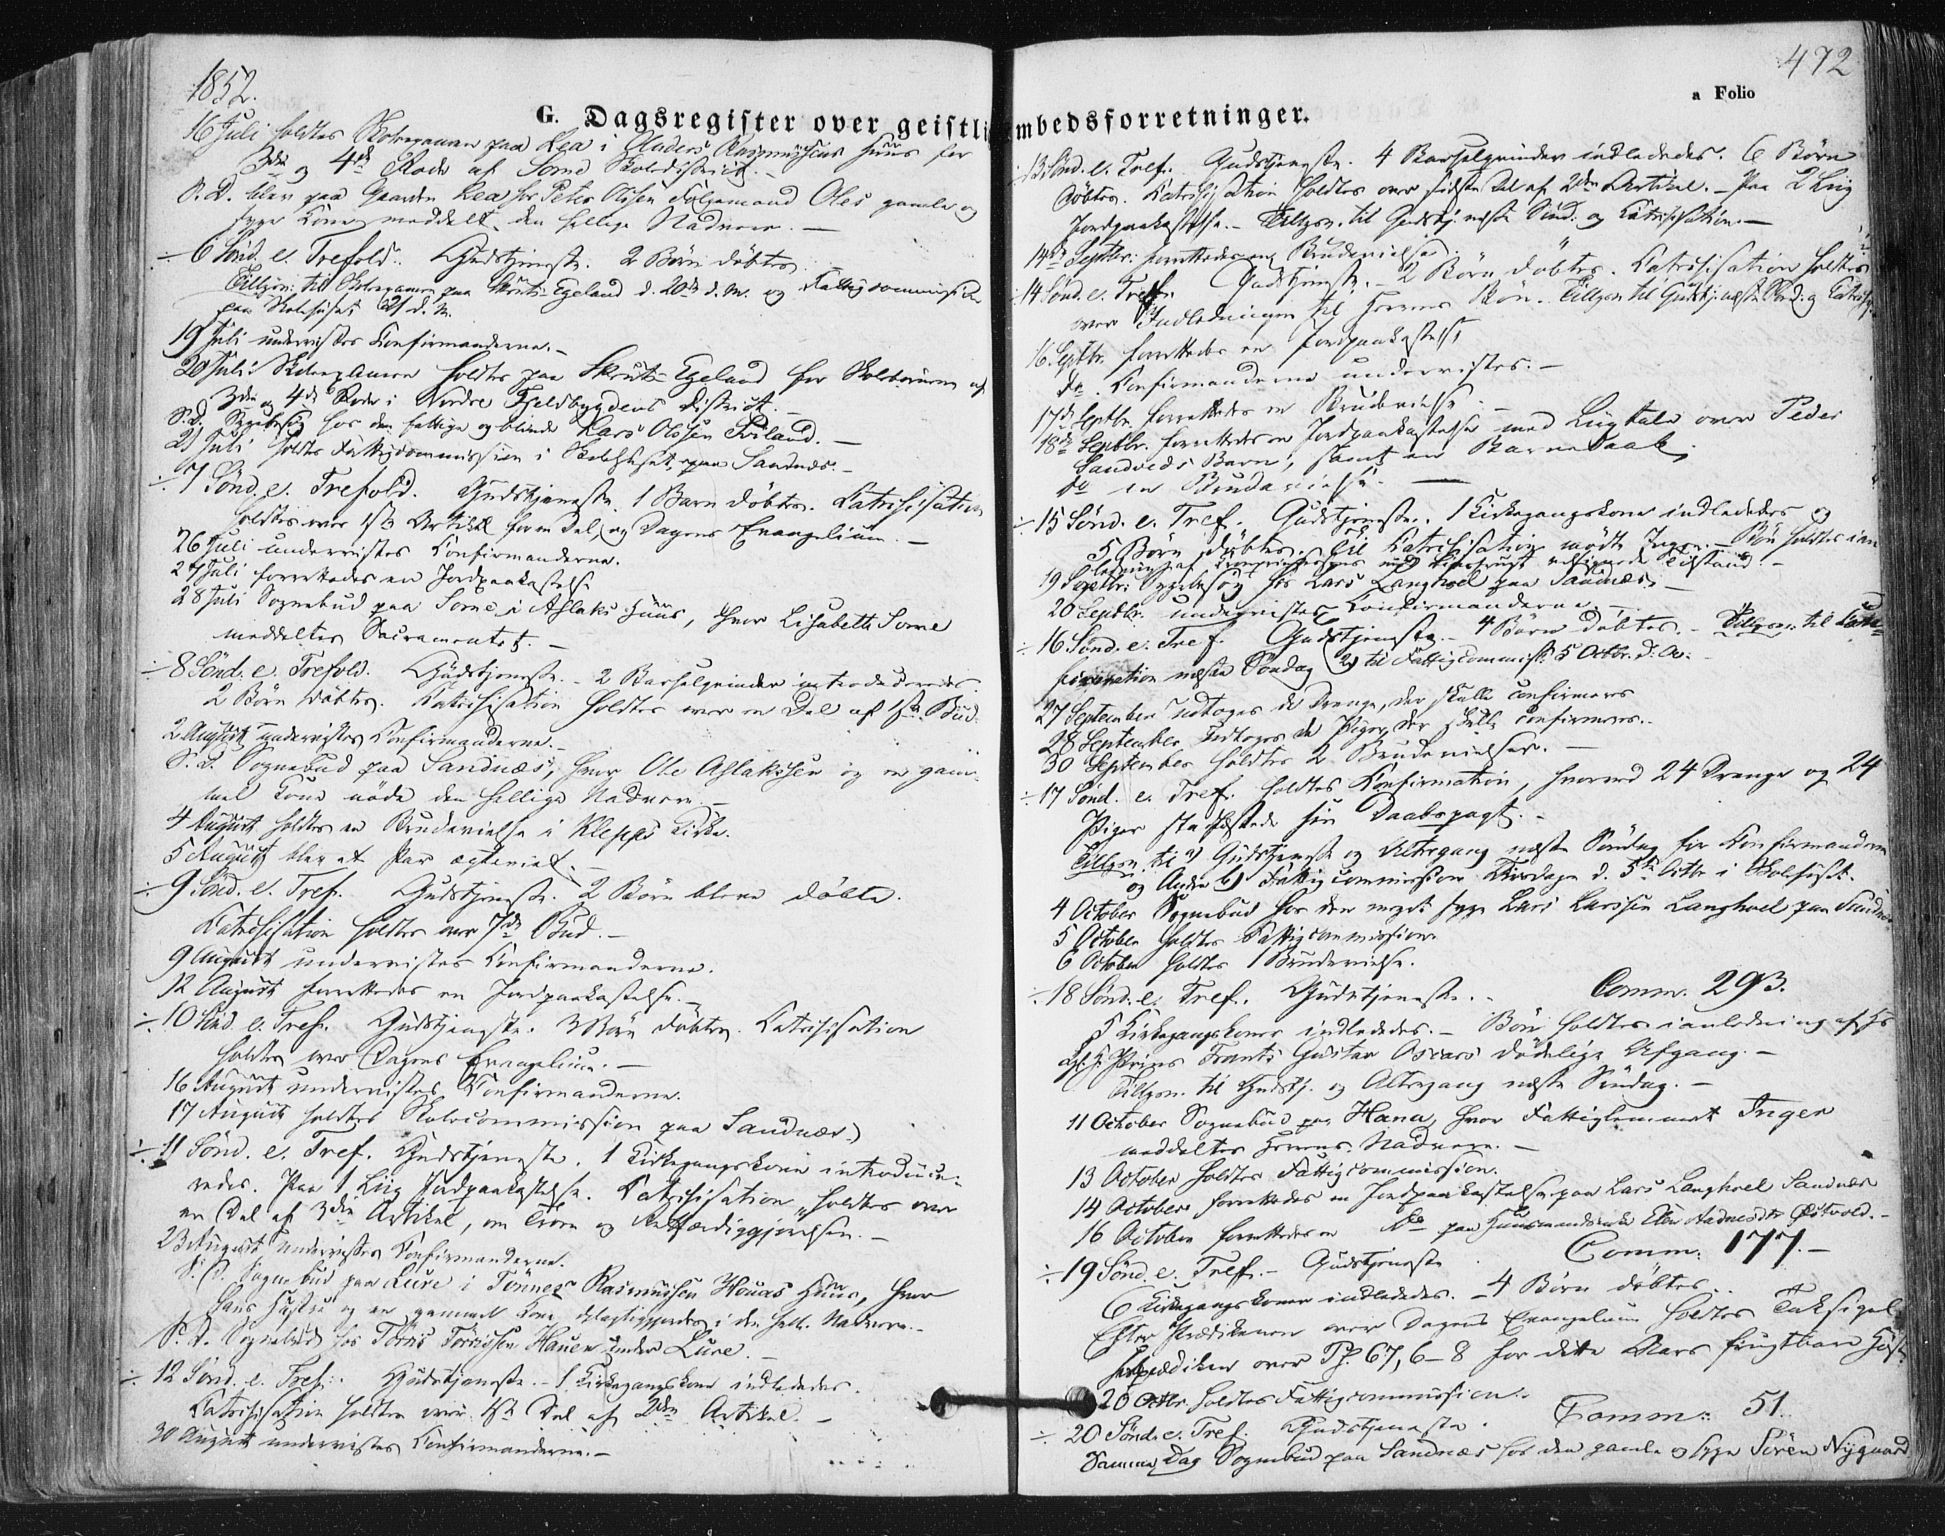 1852.
G. Dagsregister over geistli
16 Juli holdtes Skoleexamen paa Lea i Anders Rasmussens Huus for
3die og 4de Rode af Somd Skoledistrict.
S. D. blev paa Gaarden Lea for Peter Olsen Følgemand Oles gamle og
syge Kone meddelt den hellige Nadvere. —
÷ 6 Sønd. e. Trefold. Gudstjeneste. 2 Børn døbtes.
Tillysn. til Skoleexamen paa Skruts Egeland d. 20de d. M. og Fattigcommission
paa Skolehuset 21 d. M.
19 Juli undervistes Confirmanderne. —
20 Juli: Skoleexamen holdtes paa Skruts Egeland for Skolebørnene af
3die og 4de Rode i Nordre Fjeldbygdens District. —
S. D. Sygebesøg hos den fattige og blinde Lars Olsen. —
21 Juli holdtes Fattigcommission i Skolehuset paa Sandnæs. —
÷ 7 Sønd. e. Trefold. Gudstjeneste. 1 Barn døbtes. Catechisation
holdtes over 1ste Artikel første Del, og Dagens Evangelium. —
26 Juli undervistes Confirmanderne.
27 Juli forrettedes en Jordpaakastelse
28 Juli Sognebud paa Somme i Aslaks Huus, hvor Lisabeth Somme
meddeltes Sacramentet. —
÷ 8 Sønd. e. Trefold. Gudstjeneste. - 2 Barselqvinder introduceredes.
2 Børn døbtes. Catechisation holdtes over en Del af 1ste Bud.
2 August undervistes Confirmanderne. —
S. D. Sognebud paa Sandnæs, hvor Ole Aslaksen og en gam-
mel Kone nøde den hellige Nadvere. —
4 August holdtes en Brudevielse i Klepps Kirke.
5 August blev et Par ægteviet. —
÷ 9 Sønd. e. Tref. Gudstjeneste. 2 Børn bleve døbte.
Catechisation holdtes over 7de Bud. —
9 August undervistes Confirmanderne.
12 August forrettedes en Jordpaakastelse. —
÷ 10 Sønd. e. Tref. Gudstjeneste. 3 Børn døbtes. Catechisation
holdtes over Dagens Evangelium. —
16 August undervistes Confirmanderne.
17 August holdtes Skolecommission paa Sandnæs.
÷ 11 Sønd. e. Tref. Gudstjeneste. 1 Kirkegangskone introduce-
redes. Paa 1 Liig Jordpaakastelse. Catechisation holdtes over
en Del af 3die Artikel, om Troen og Retfærdiggjørelsen. —
23 August undervistes Confirmanderne.
S. D. Sognebud paa Lure i Tönnes Rasmussen Houas Huus, hvor
hans Hustru og en gammel Kone delagtiggjordes i den hell. Nadvere. —
S. D. Sognebud hos Törris Törrissen Hauen under Lure. —
÷ 12 Sønd. e. Tref. Gudstjeneste. - 1 Kirkegangskone indledes.
Catechisation holdtes over 1ste Del af 2den Artikel. —
30 August undervistes Confirmanderne. —
472
a Folio
mbedsforretninger.
÷ 13 Sønd. e. Tref. Gudstjeneste. 4 Barselqvinder indledes. 6 Børn
døbtes. Catechisation holdtes over sidste Del af 2den Artikel. — Paa 2 Liig
Jordpaakastelse. — Tillysn. til Gudstj. næste Sønd. og Catechisation. —
14de Septbr. forrettedes en Brudevielse
÷ 14 Sønd. e. Tref. Gudstjeneste. - 2 Børn døbtes. Catechisation holdtes
over Indledningen til Herrens Bøn. Tillysn. til Gudstj. næste Sønd. og Catechis.
16 Septbr. forrettedes en Jordpaakastelse
Do. Confirmanderne undervistes. —
17de Septbr. forrettedes en Brudevielse. —
18de Septbr. forrettedes en Jordpaakastelse med Liigtale over Peder
Sandveds Barn, samt en Barnedaab.
Do en Brudevielse. —
÷ 15 Sønd. e. Tref. Gudstjeneste. 1 Kirkegangskone indledes og
5 Børn døbtes. Til Catechisation mødte Ingen. — Bøn holdtes i an-
ledning af Kronprindsessens med Livsfrugt velsignede Tilstand. —
19 Septbr. Sygebesøg hos Lars Langhoel paa Sandnæs. —
20 Septbr. undervistes Confirmanderne. —
÷ 16 Sønd. e. Tref. Gudstjeneste. - 4 Børn døbtes. - Tillysn. til
næste Søndag 2) til Fattigcommiss. 5 Octbr. d. A. —
27 September udtoges de Drenge, der skulle confirmeres
28 September udtoges de Piger, der skulle confirmeres. —
30 September holdtes 2 Brudevielser. —
÷ 17 Sønd. e. Tref. holdtes Confirmation, hvorved 24 Drenge og 24
Piger stadfæstede sin Daabspagt. —
Tillysn. til a) Gudstjeneste og Altergang næste Søndag for Confirmanderne
og Andre b) Fattigcommission Tirsdagen d. 5te Octbr i Skolehuset.
4 October Sognebud hos den meget syge Lars Larssen Langhoel paa Sandnæs
5 October holdtes Fattigcommission
6 October holdtes 1 Brudevielse.
÷ 18 Sønd. e. Tref. Gudstjeneste. - Comm. 293.
5 Kirkegangskoner indledes. — Bøn holdtes i anledning af Hs
kgl. H. Prins Frants Gustav Oscars dødelige Afgang. —
Tillysn. til Gudstj. og Altergang næste Søndag. —
11 October Sognebud paa Hana, hvor Fattiglemmet Inger
meddeltes Herrens Nadvere. —
13 October holdtes Fattigcommission.
14 October forrettedes en Jordpaakastelse paa Lars Langhoel Sandnæs
16 October forrettedes en Do paa Huusmandsenke Østvold. —
Comm: 177. —
÷ 19 Sønd. e. Tref. — Gudstjeneste
6 Kirkegangskoner indledes. — 4 Børn døbtes.
Efter Prædikenen over Dagens Evangelium holdtes Taksigel-
sesprædiken over Ps. 67, 6-8 for dette Aars frugtbare Høst.
20 Octbr. holdtes Fattigcommission. Comm: 51.
÷ 20 Sønd. e. Tref. Gudstjeneste.
Samme Dag Sognebud paa Sandnæs hos den gamle og syge Sören Nygaard